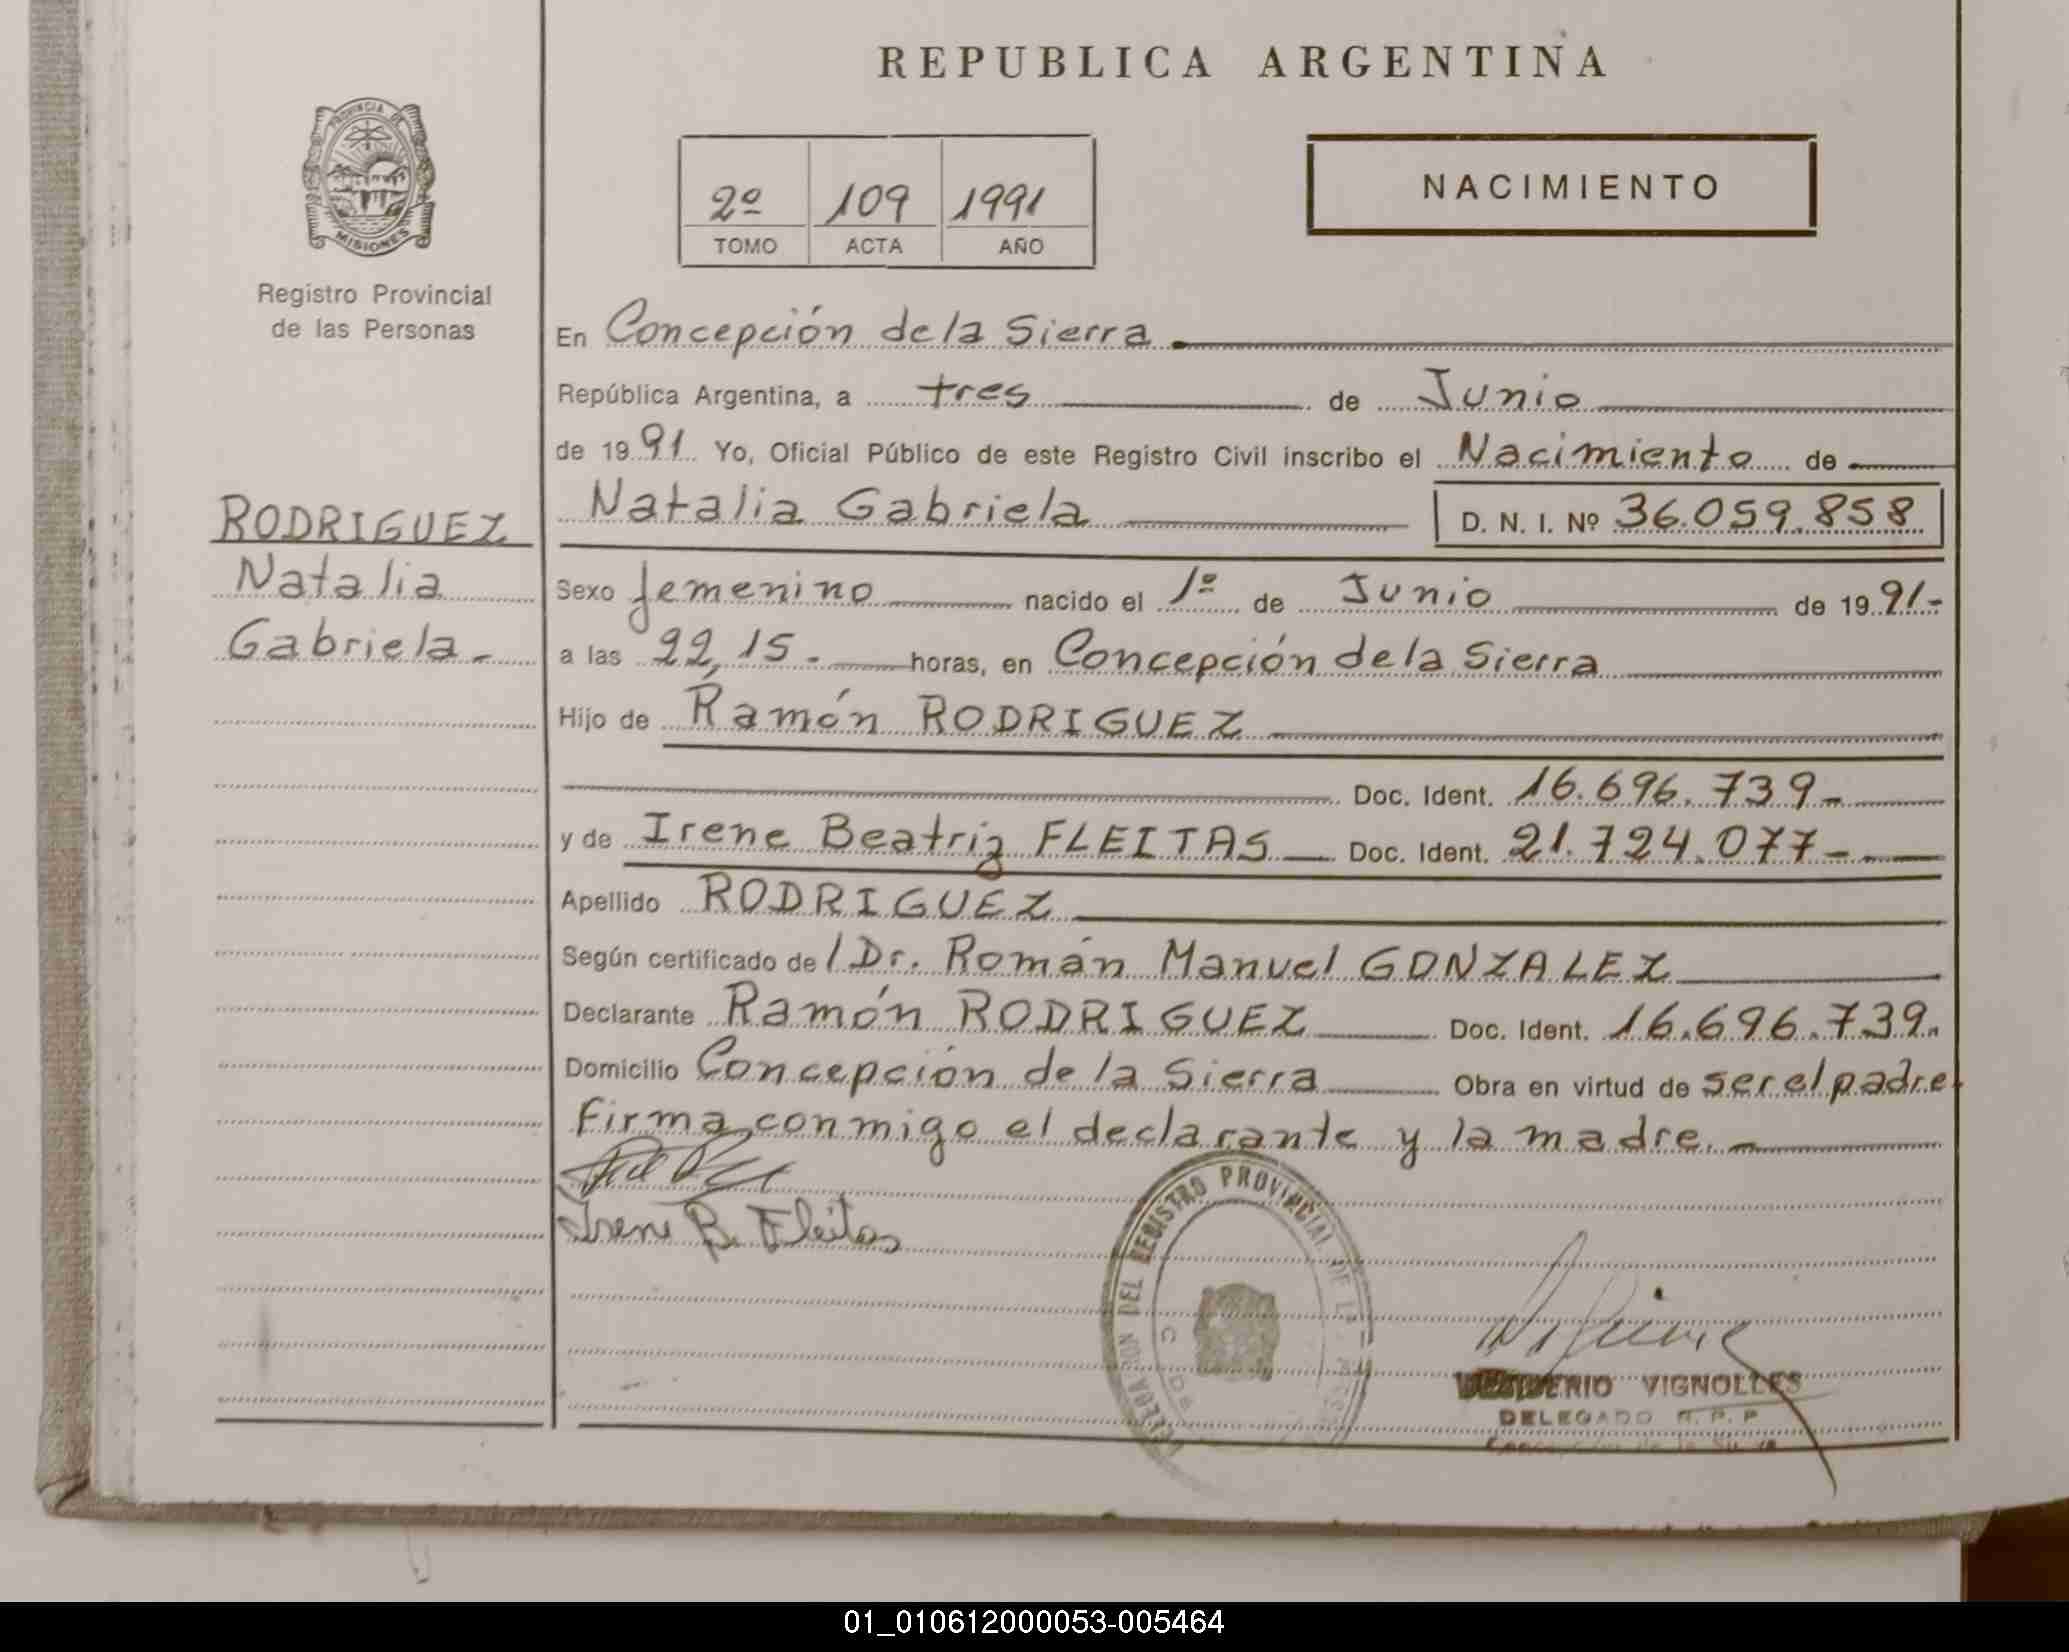 REPUBLICA ARGENTINA
PROVINCIA DE
MISIONES
Registro Provincial
de las Personas
2º 109 1991
TOMO ACTA AÑO
NACIMIENTO
En Concepción de la Sierra
República Argentina, a tres de Junio
de 1991 Yo, Oficial Público de este Registro Civil inscribo el Nacimiento de
Natalia Gabriela D. N. I. Nº 36.059.858
RODRIGUEZ
Natalia
Gabriela.-
Sexo femenino nacido el 1º de Junio de 1991-
a las 22,15.- horas, en Concepción de la Sierra
Hijo de Ramón RODRIGUEZ
Doc. Ident. 16.696.739-
y de Irene Beatriz FLEITAS Doc. Ident. 21.724.077-
Apellido RODRIGUEZ
Según certificado de l Dr. Román Manuel GONZALEZ
Declarante Ramón RODRIGUEZ Doc. Ident. 16.696.739.
Domicilio Concepción de la Sierra Obra en virtud de ser el padre.
Firma conmigo el declarante y la madre.-
Irene B. Fleitas
DEL REGISTRO PROVINCIAL DE
VIGNOLLES
DELEGADO R.P.P
01_010612000053-005464